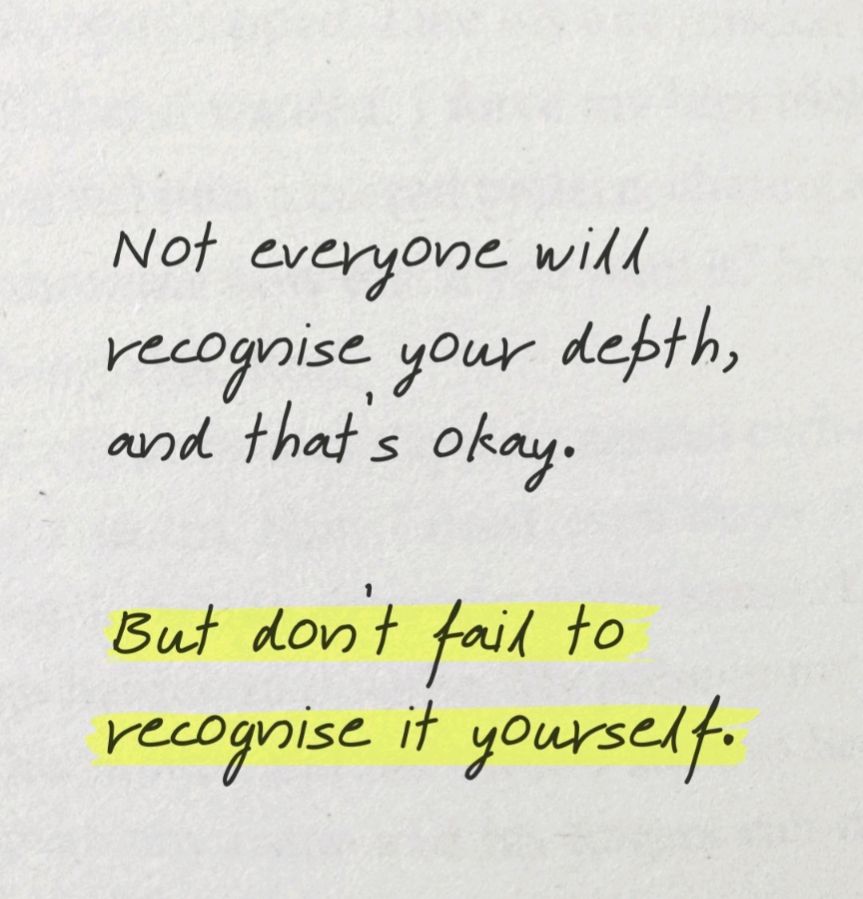 Not everyone will
recognise your depth,
and that's okay.
But don't fail to
recognise it yourself.